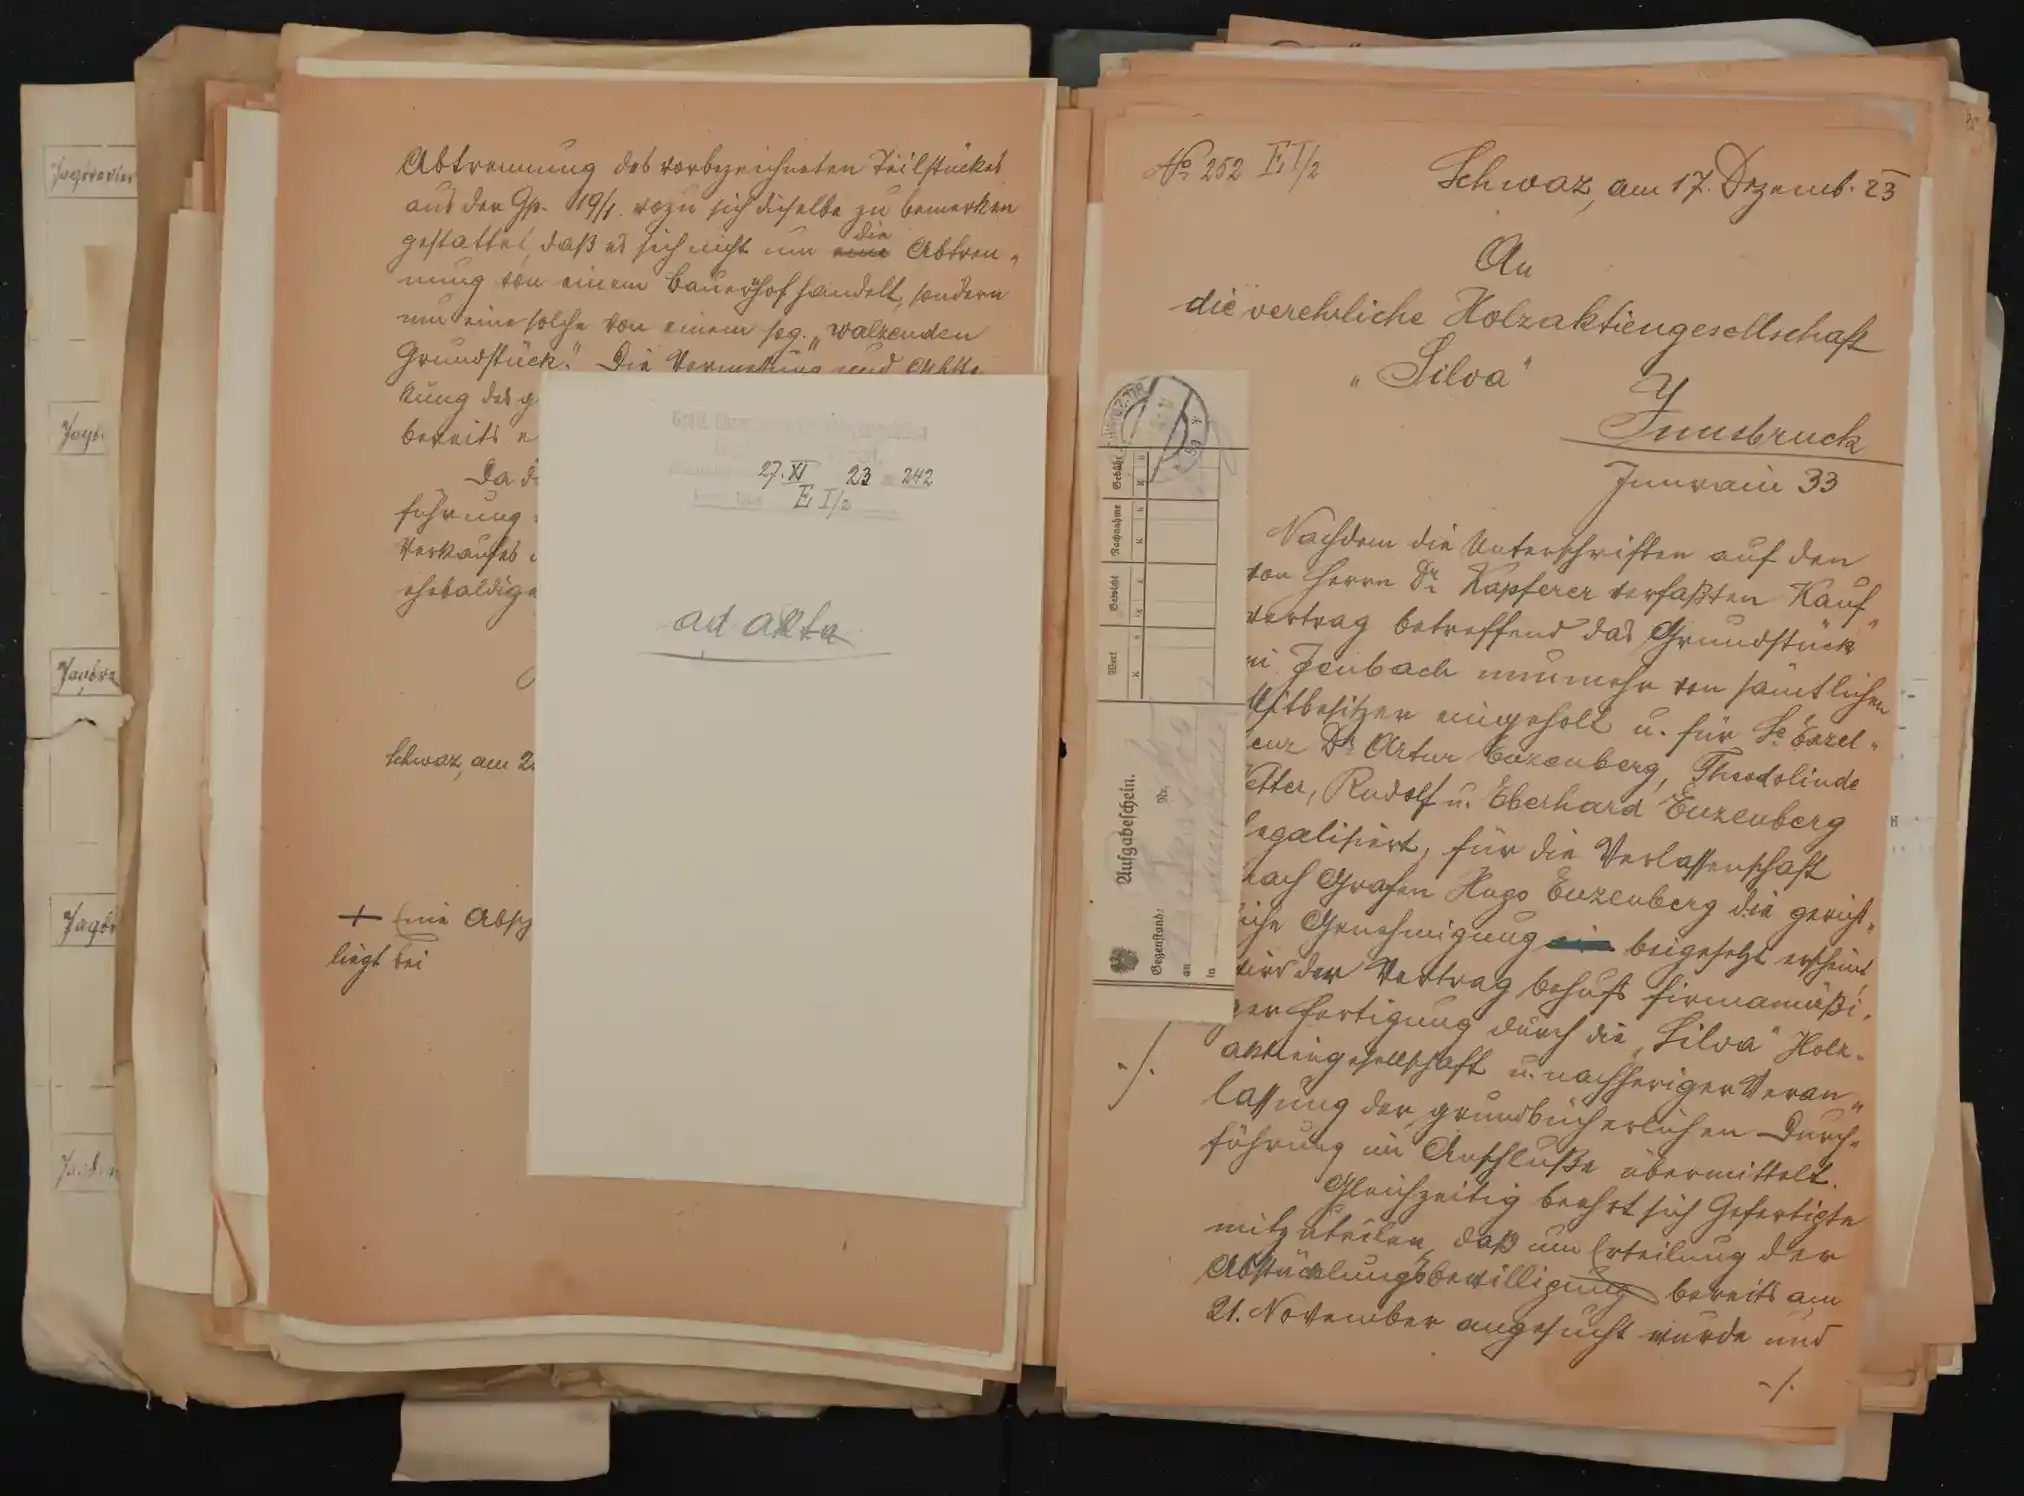 Jagdrevier
Jagd
Jagdre
Jagdr
Abtrennung des vorbezeichneten Teilstückes
aus der Gp. 19/1. wozu sich dieselbe zu bemerken
gestattet, daß es sich nicht um eine die Abtren-
nung von einem Bauernhof handelt, sondern
um eine solche von einem sog. „walzenden
Grundstück." Die Vermessung und
kung des g
bereits e
Da di
führung
Verkaufes
ehebaldige
Schwaz, am 2
+ Eine Absch
liegt bei
27. XI 23 242
E I/2
ad akta
No 252 E I/2
Schwaz, am 17. Dezemb. 23
An
die verehrliche Holzaktiengesellschaft
„Silva"
Innsbruck
Innrain 33
Nachdem die Unterschriften auf den
von Herrn Dr. Kapferer verfaßten Kauf-
vertrag betreffend das Grundstück
in Jenbach nunmehr von sämtlichen
Mitbesitzer eingeholt u. für Se Exzel-
lenz Dr Artur Enzenberg, Theodolinde
Vetter, Rudolf u. Eberhard Enzenberg
legalisiert, für die Verlassenschaft
nach Grafen Hugo Enzenberg die gericht-
liche Genehmigung beigesetzt erscheint
wird der Vertrag behufs firmamäßi-
ger Fertigung durch die „Silva" Holz-
aktiengesellschaft u. nachheriger Veran-
lassung der grundbücherlichen Durch-
führung im Anschluße übermittelt.
Gleichzeitig beehrt sich Gefertigte
mitzuteilen, daß um Erteilung der
Abstücklungsbewilligung bereits am
21. November angesucht wurde und
./.
Aufgabeschein.
Nr.
Gegenstand:
an
in
Wert
Gewicht
Nachnahme
Gebühr
K h
K h
kg
K
./.